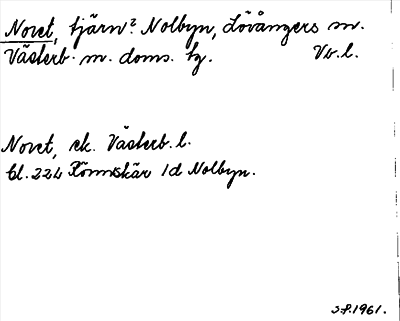 Noret, tjärn? Nolbyn, Lövångers sn.
Västerb. m. doms. tg. Vb. l.
Noret, ek. Västerb. l.
bl. 224 Rönnskär 1d Nolbyn.
S.P. 1961.